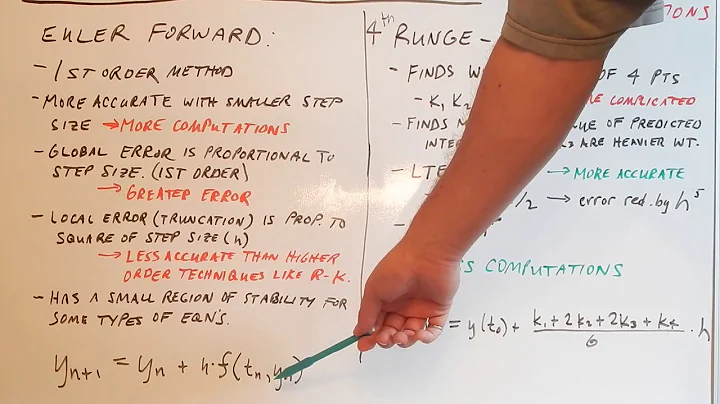 EULER FORWARD:
- 1ST ORDER METHOD
- MORE ACCURATE WITH SMALLER STEP
SIZE → MORE COMPUTATIONS
- GLOBAL ERROR IS PROPORTIONAL TO
STEP SIZE. (1ST ORDER)
→ GREATER ERROR
- LOCAL ERROR (TRUNCATION) IS PROP. TO
SQUARE OF STEP SIZE (h)
→ LESS ACCURATE THAN HIGHER
ORDER TECHNIQUES LIKE R-K.
- HAS A SMALL REGION OF STABILITY FOR
SOME TYPES OF EQN'S.
yn+1 = yn + h·f(tn, yn)
4th RUNGE -
- FINDS OF 4 PTS
- K1 K2 COMPLICATED
- FINDS OF PREDICTED
ARE HEAVIER WT.
- LTE → MORE ACCURATE
/2 → error red. by h^5
COMPUTATIONS
= y(t0) + (k1 + 2k2 + 2k3 + k4)/6 · h